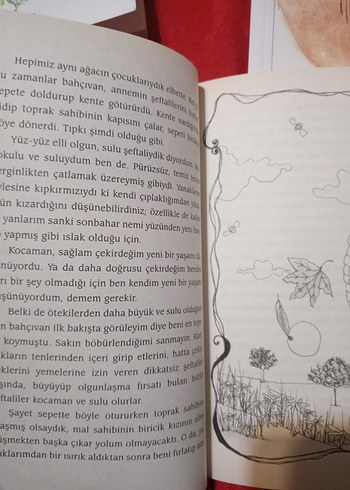 Hepimiz aynı ağacın çocuklarıydık elbette.
u zamanlar bahçıvan, annemin şeftalilerini
epete doldurup kente götürürdü. Kente
idip toprak sahibinin kapısını çalar, sepeti
öye dönerdi. Tıpkı şimdi olduğu gibi.
Yüz-yüz elli olgun, sulu şeftaliydik diyordum.
okulu ve suluydum ben de. Pürüzsüz, temiz
erginlikten çatlamak üzereymiş gibiydi. Yanakları
ylesine kıpkırmızıydı ki kendi çıplaklığımdan
ün kızardığını düşünebilirdiniz; özellikle de
yanlarım sanki sonbahar nemi yüzünden yeni
yapmış gibi ıslak olduğu için.
Kocaman, sağlam çekirdeğim yeni bir yaşamı
nüyordu. Ya da daha doğrusu çekirdeğim benden
rı bir şey olmadığı için ben kendim yeni bir yaşam
üşünüyordum, demem gerekir.
Belki de ötekilerden daha büyük ve sulu olduğum
n bahçıvan ilk bakışta görüleyim diye beni en tepe
koymuştu. Sakın böbürlendiğimi sanmayın.
kların tenlerinden içeri girip etlerini, hatta
klerini yemelerine izin veren dikkatsiz şeftaliler
şında, büyüyüp olgunlaşma fırsatı bulan bütün
ftaliler kocaman ve sulu olurlar.
Şayet sepette böyle otururken toprak sahibine
aşmış olsaydık, mal sahibinin biricik kızının
üşmekten başka çıkar yolum olmayacaktı. O da,
aklarımdan bir ısırık aldıktan sonra beni fırlatıp